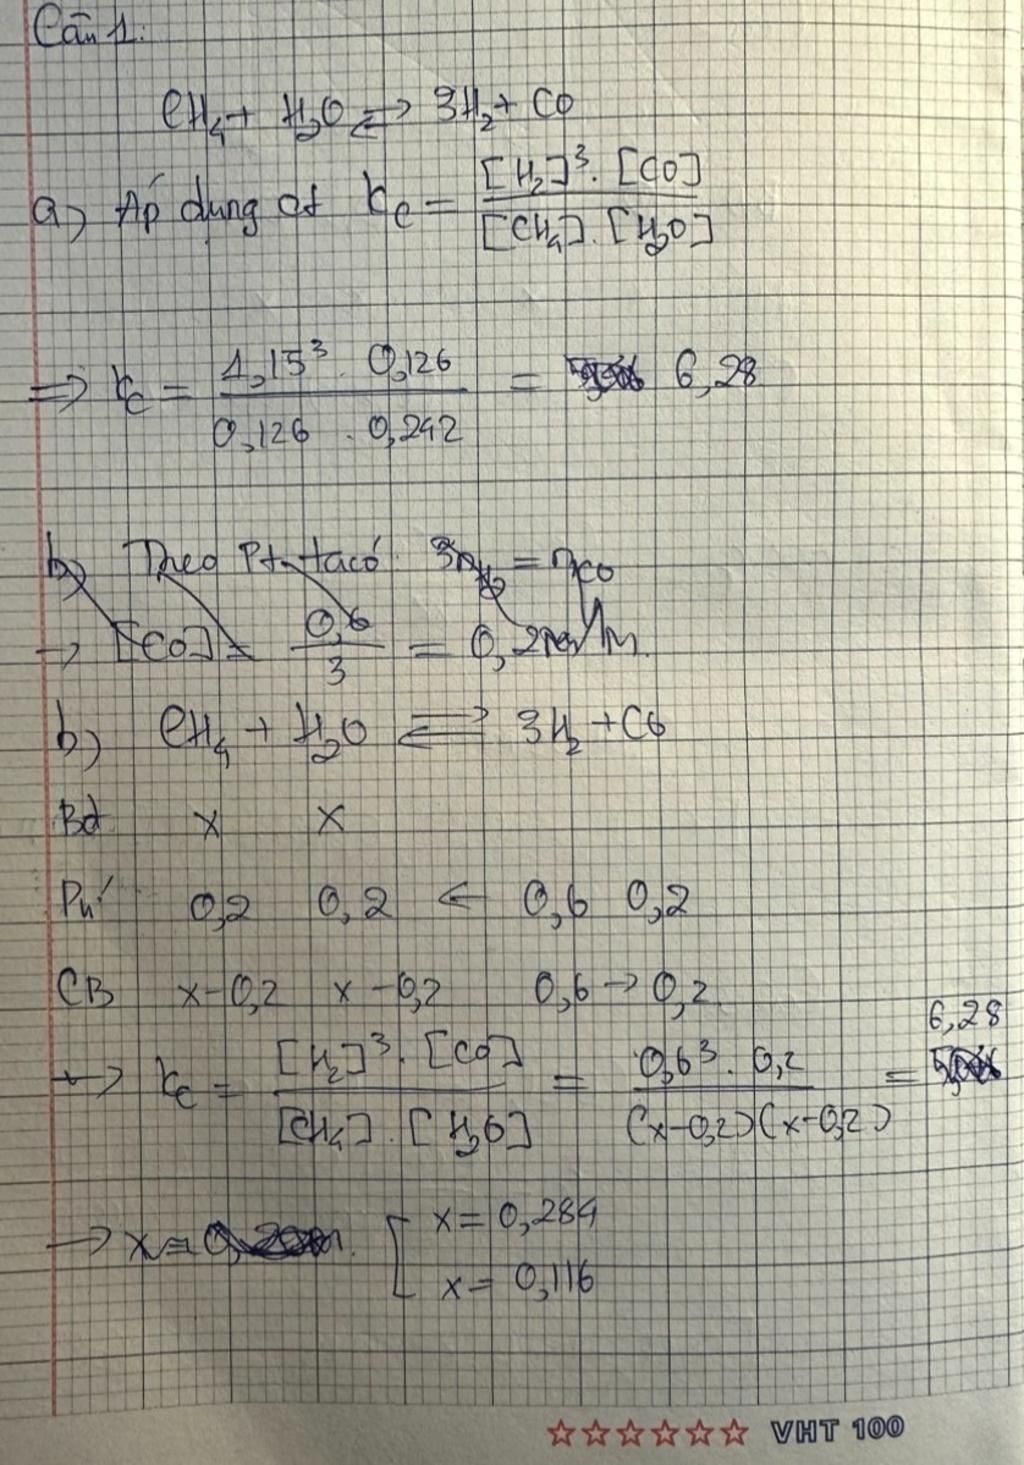 Câu 1:
CH₄ + H₂O ⇌ 3H₂ + CO
a) Áp dụng ct Kc = [H₂]³. [CO] / [CH₄]. [H₂O]
=> Kc = 1,15³. 0,126 / 0,126 . 0,242 = 6,28
b) Theo Pt ta có 3nH₂ = nCO
→ [CO] = 0,6 / 3 = 0,2
b) CH₄ + H₂O ⇌ 3H₂ + CO
Bđ x x
Pứ 0,2 0,2 ← 0,6 0,2
CB x-0,2 x-0,2 0,6 → 0,2
→ Kc = [H₂]³. [CO] / [CH₄]. [H₂O] = 0,6³. 0,2 / (x-0,2)(x-0,2) = 6,28
→ x = [ x = 0,284
x = 0,116
VHT 100